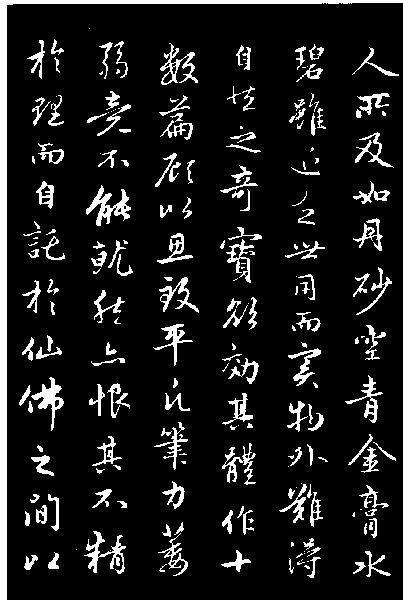 人所及如丹砂空青金膏水
碧雖近乏世用而實物外難得
自然之奇寶欲効其體作十
數篇顧以思致平凡筆力萎
弱竟不能就然亦恨其不精
於理而自託於仙佛之間以